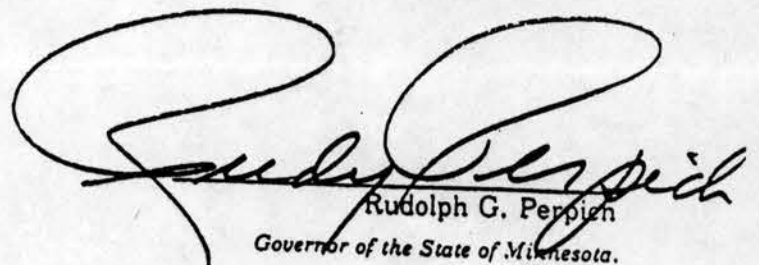 Rudy Perpich
Rudolph G. Perpich
Governor of the State of Minnesota.